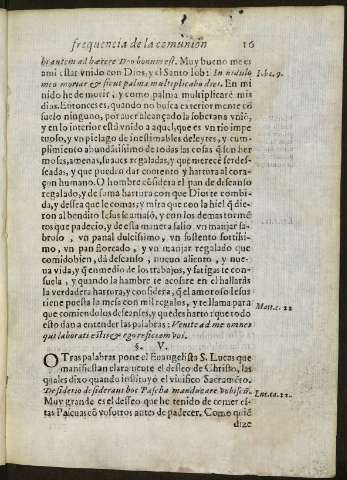 frequencia de la comunion 16
hi autem adhærere Deo bonum est. Muy bueno me es
a mi estar vnido con Dios, y el Santo Iob: In nidulo Iob. c. 9.
meo moriar & sicut palma multiplicabo dies. En mi
nido he de morir, y como palma multiplicaré mis
dias. Entonces es, quando no busca exteriormente cõ
suelo ninguno, por auer alcançado la soberana vniõ,
y en lo interior está vnido a aquel, que es vn rio impe
tuoso, y vn pielago de inestimables deleytes, y cum-
plimiento abundãtissimo de todas las cosas q̃ son her
mosas, amenas, suaues regaladas, y que merecẽ ser des-
seadas, y que pueden dar contento y hartura al cora-
çon humano. O hombre cõsidera el pan de descanso
regalado, y de suma hartura con que Dios te combi-
da, y dessea que le comas, y mira que con la hiel q̃ die-
ron al bendito Iesus se amasó, y con los demas tormẽ-
tos que padecio, y de esta manera salio vn manjar sa-
broso, vn panal dulcissimo, vn sustento fortissi-
mo, vn pan floreado, y vn manjar regalado que
comido bien, dá descanso, nueuo aliento, y nue-
ua vida, y q̃ en medio de los trabajos, y fatigas te con-
suela, y quando la hambre te acosare en el hallarás
la verdadera hartura, y considera, q̃ el amoroso Iesus
tiene puesta la mesa con mil regalos, y te llama para Matt. c. 11
que comiendolos descanses, y quedes harto que todo
esto dan a entender las palabras: Venite ad me omnes
qui laboratis estis & ego reficiam vos.
§. V.
OTras palabras pone el Euangelista S. Lucas que
manifiestan claramente el desseo de Christo, las
quales dixo quando instituyó el viuifico Sacramẽto.
Desiderio desideraui hoc Pascha manducare vobiscũ. Luc. ca. 22.
Muy grande es el desseo que he tenido de comer es-
tas Pascuas cõ vosotros antes de padecer. Como quiẽ
dize